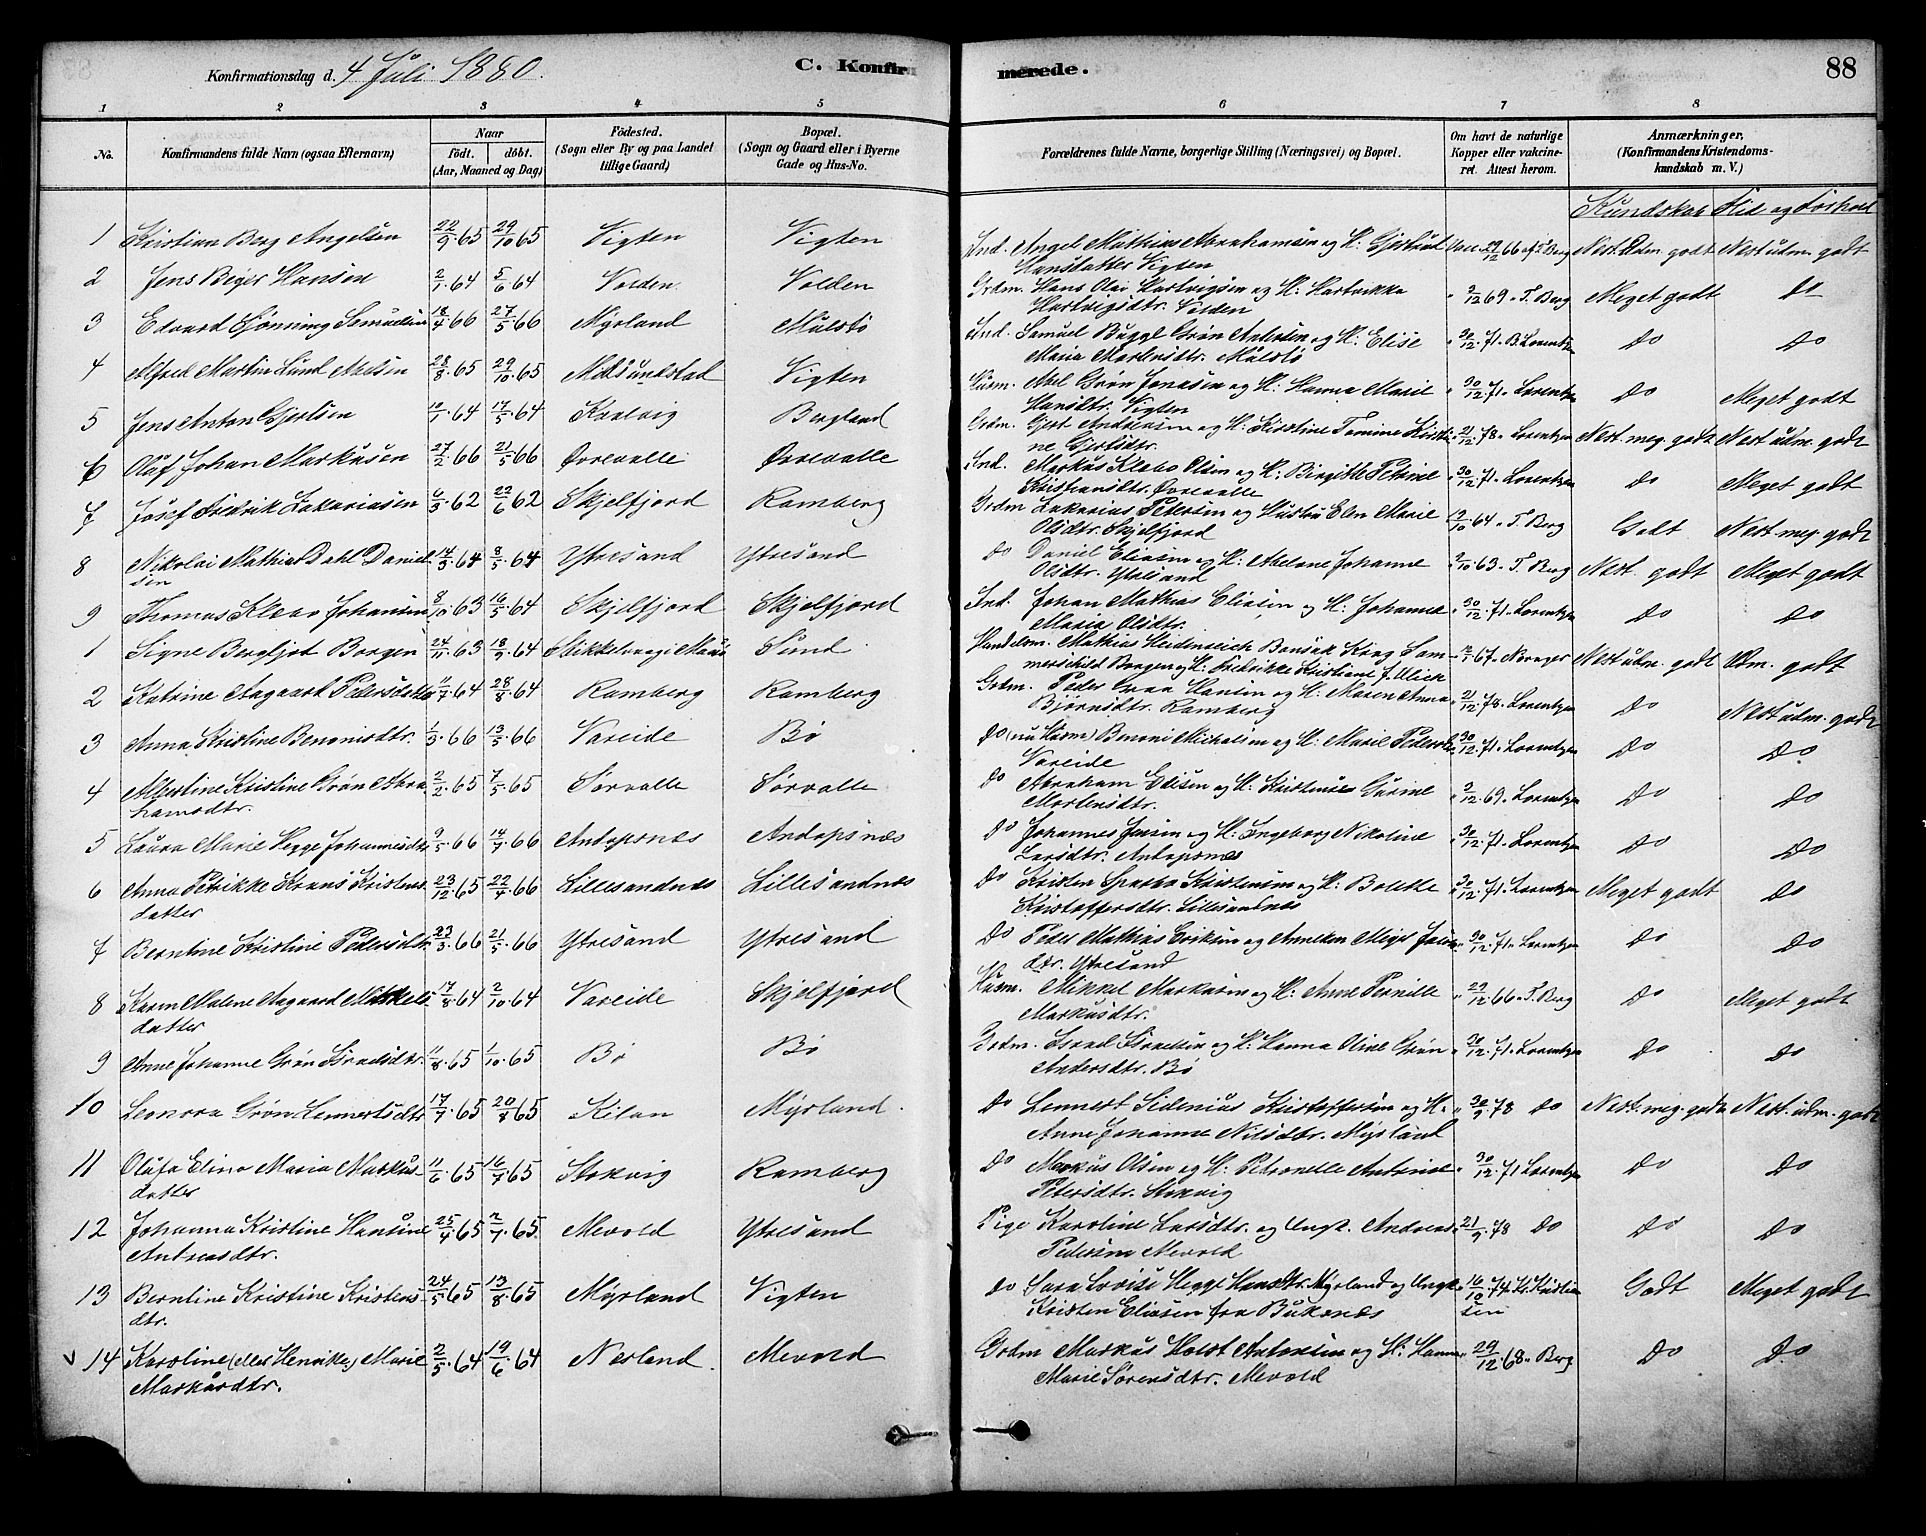 Konfirmationsdag d. 4 Juli 1880.
C. Konfirmerede.
88
1 2 3 4 5 6 7 8
No.
Konfirmandens fulde Navn (ogsaa Efternavn)
Naar
Födt. döbt.
(Aar, Maaned og Dag)
Födested.
(Sogn eller By og paa Landet
tillige Gaard)
Bopæl.
(Sogn og Gaard eller i Byerne
Gade og Hus-No.
Forældrenes fulde Navne, borgerlige Stilling (Næringsvei) og Bopæl.
Om havt de naturlige
Kopper eller vakcine-
ret. Attest herom.
Anmærkninger,
(Konfirmandens Kristendoms-
kundskab m. V.)
Kundskab Flid og Forhold
1 Kristian Berg Angelsen 22/9 65 29/10 65 Vigten Vigten Ind. Angel Mathias Abrahamsen og H: Gjertrud Vacc. 29/12 66 af T. Berg Nest. Udm. godt Nest udm. godt
Hansdatter Vigten
2 Jens Beyer Hansen 2/1 64 5/6 64 Volden Volden Grdm. Hans Olai Hartvigsen og H: Hartvikka " 9/12 69 " T. Berg Meget godt Do
Hartvigsdtr. Volden
3 Edvard Lønning Semuelsen 18/4 66 27/5 66 Myrland Mulstø Ind. Samuel Bugge Grøn Andersen og H: Elise " 30/12 71 " B. Lorentzen Do Do
Maria Martinsdtr. Mulstø
4 Alfred Martin Lund Axelsen 28/8 65 29/10 65 Midsundstad Vigten Husm. Axel Grøn Jonassen og H: Hanna Marie " 30/12 71 " Lorentzen Do Meget godt
Hansdtr. Vigten
5 Jens Anton Gjertsen 10/1 64 17/5 64 Kvalvig Bergland Grdm. Gjert Andersen og H: Kirstine Tomine Kristi- " 21/12 78 " Lorentzen Nest. meg. godt Nest udm. godt
ne Gjertsdtr.
6 Oluf Johan Markusen 27/2 66 21/5 66 Øvrevalle Øvrevalle Ind. Markus Klebo Olsen og H: Birgitte Petrine " 30/12 71 " Lorentzen Do Meget godt
Kristiansdtr. Øvrevalle
7 Josef Fredrik Zakariasen 6/3 62 22/6 62 Skjelfjord Ramberg Grdm Zakarias Pedersen og Hustru Elen Marie 19/10 64 " T. Berg Godt Nest meg. godt
Olsdtr. Skjelfjord
8 Nikolai Mathias Dahl Daniel- 14/3 64 8/5 64 Ytresand Ytresand Do Daniel Eliasen og H: Abelone Johanne 9/10 63 " T. Berg Nest. godt Meget godt
sen Olsdtr. Ytresand
9 Thomas Klebo Johansen 8/10 63 16/5 64 Skjelfjord Skjelfjord Ind. Johan Mathias Eliasen og H: Johanna " 30/12 71 " Lorentzen Do Do
Maria Olsdtr.
1 Signe Bergljot Borgen 24/11 63 18/9 64 Sund Handelsm. Mathias Heidenreich Bonsak Krog Tam- 67 " Nest udm. godt Udm. godt
merschild Borgen og H: Fredrikke Kristiane J. Ulich
2 Katrine Aagaard Pedersdatter 11/7 64 28/8 64 Ramberg Ramberg Grdm. Peder Graa Hansen og H: Maren Anna " 21/12 78 " Lorentzen Do Nest udm. godt
Bjørnsdtr. Ramberg
3 Anna Kristine Benonisdtr. 1/3 66 13/5 66 Vareide Bø Do (nu Husm) Benoni Michelsen og H: Marie Pedersdtr 30/12 71 " Lorentzen Do Do
Vareide
4 Albertine Kristine Grøn Abra- 2/2 65 7/5 65 Sørvalle Sørvalle Do Abraham Edisen og H: Kristense Gurine " 9/12 69 " Lorentzen Do Do
hamsdtr. Mortensdtr.
5 Laura Marie Hegge Johannesdtr. 9/5 66 14/7 66 Andopsnæs Andopsnæs Do Johannes Jensen og H: Ingeborg Nikoline " 30/12 71 " Lorentzen Do Do
Larsdtr. Andopsnes
6 Anna Petrikke Krans Kristens- 23/12 65 22/4 66 Lillesandnæs Lillesandnæs Do Kristen Sparbo Kristensen og H: Bolette " 30/12 71 " Lorentzen Meget godt Do
datter Kristoffersdtr. Lillesandnæs
7 Berntine Kristine Pedersdtr. 23/3 66 21/5 66 Ytresand Ytresand Do Peder Mathias Eriksen og Anneken Meyer Jakobs- " 30/12 71 " Lorentzen Do Do
dtr. Ytresand
8 Karen Malene Aagaard Mikkels- 17/8 64 2/10 64 Vareide Skjelfjord Husm. Mikkel Markusen og H: Anne Pernille " 29/12 66 " T. Berg Do Meget godt
datter Markusdtr.
9 Anne Johanne Grøn Israelsdtr. 11/8 65 1/10 65 Bø Bø Grdm. Israel Israelsen og H: Hanna Oline Grøn " 30/12 71 " Lorentzen Do Do
Andersdtr. Bø
10 Leonora Grøn Lennertsdtr 17/7 65 20/8 65 Kilan Myrland. Do Lennert Sidenius Kristoffersen og H: " 30/9 78 Do Nest. meg. godt Nest. udm. godt
Anne Johanne Nilsdtr. Myrland
11 Olufa Elina Maria Markus- 11/6 65 16/7 65 Stokvig Ramberg Do Markus Olsen og H: Petronelle Antonine " 30/12 71 Lorentzen Do Do
datter Petersdtr. Stokvig
12 Johanna Kristine Hansine 25/4 65 2/7 65. Mevold Ytresand Pige Karoline Larsdtr. og Ungk. Andreas " 21/9 78 Do Do Do
Andreasdtr. Pedersen Mevold
13 Berntine Kristine Kristens- 24/5 65 13/8 65 Myrland Vigten Do Sara Lovise Hegge Hansdtr. Myrland og Ungk. " 16/10 74 H. Kristian- Godt Meget godt
dtr. Kristen Eliasen fra Buksnæs sen
14 Karoline (eller Henrikke) Marie 2/5 64 19/6 64 Nesland. Mevold Grdm Markus Holst Antonsen og H: Hanna " 29/12 68 " Berg Do Do
Markusdtr. Marie Sørensdtr. Mevold